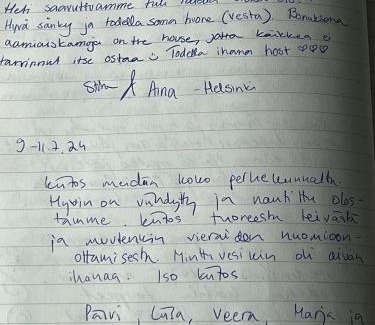 Heti saavuttuamme tuli
Hyvä sänky ja todella soma huone (vesta). Panuksena
aamiaiskamoja on the house, jotta kaikkea ei
tarvinnut itse ostaa Todella ihana host ♡♡♡
& Aina - Helsinki
9-11.7.24
kiitos meidän koko perhekunnalta.
Hyvin on viihdytty ja nautittu olos-
tamme. kiitos tuoreesta leivästä
ja muutenkin vieraiden huomioon-
ottamisesta. Minttuvesikin oli aivan
ihanaa. Iso kiitos.
Päivi, Veera, Marja ja